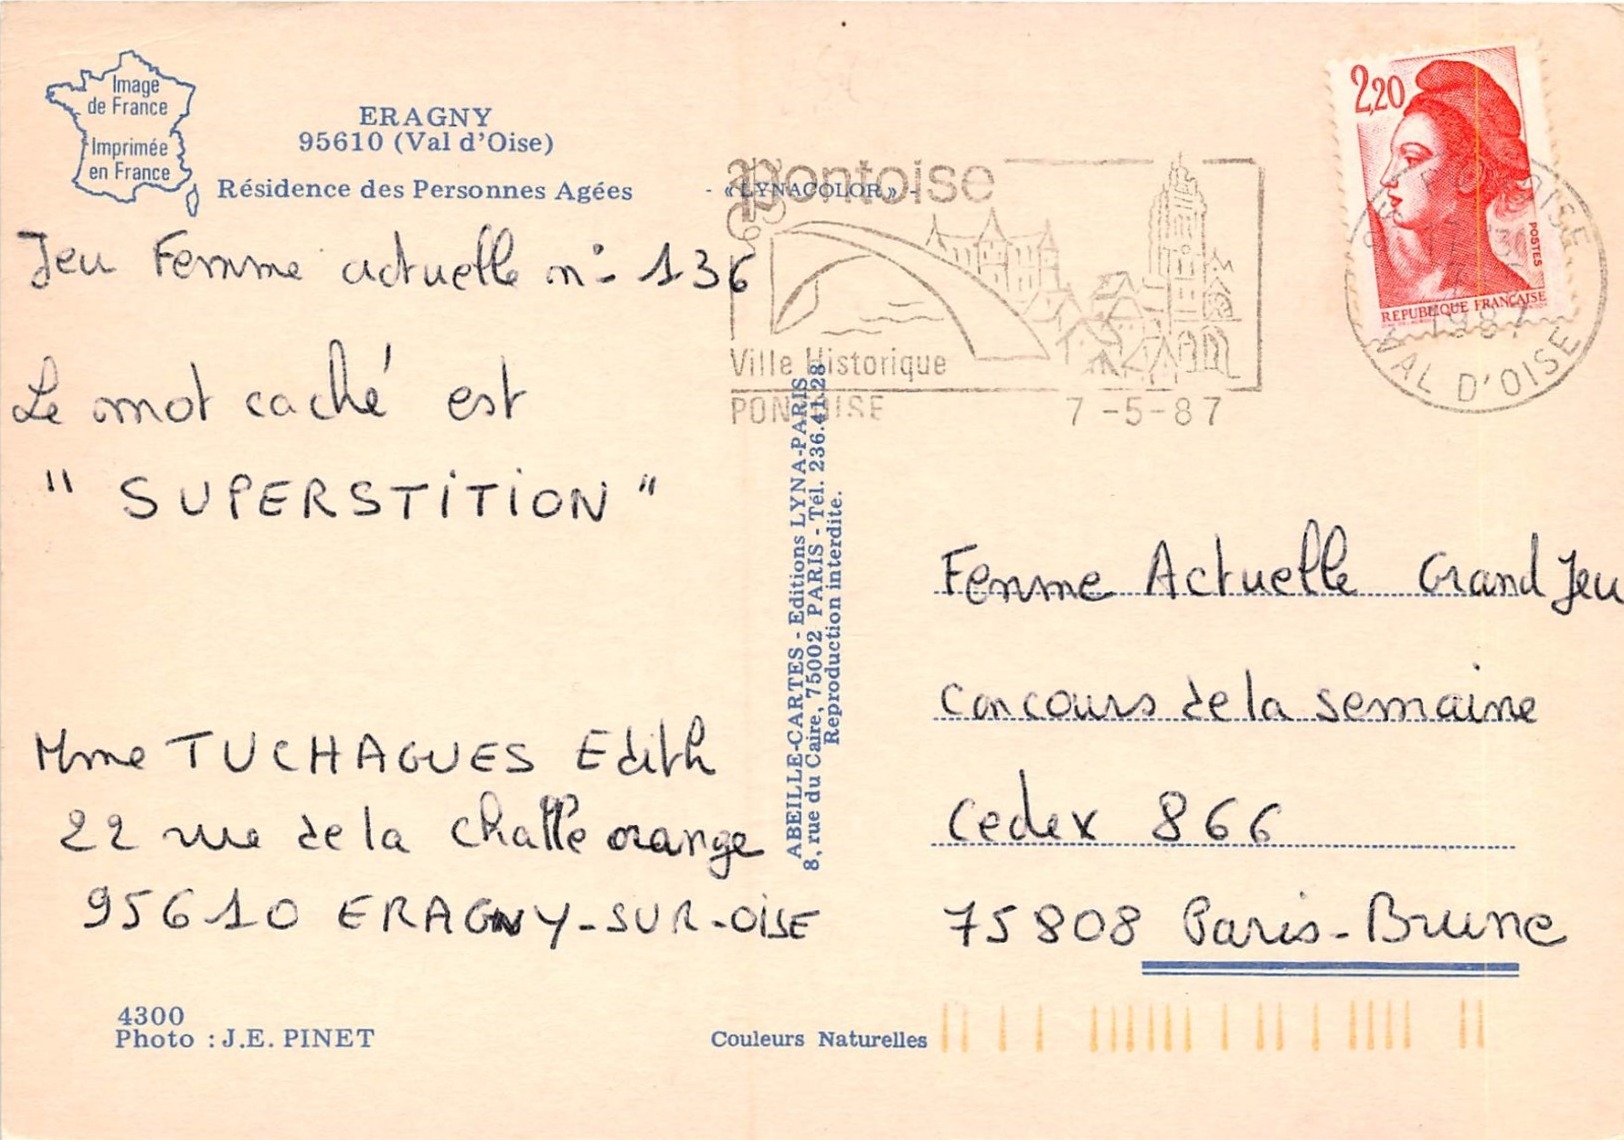 Image
de France
Imprimée
en France
ERAGNY
95610 (Val d'Oise)
Résidence des Personnes Agées
- « LYNACOLOR » -
Jeu Femme actuelle n° 136
Le mot caché est
" SUPERSTITION "
Mme TUCHAGUES Edith
22 rue de la Chatte orange
95610 ERAGNY-SUR-OISE
4300
Photo : J.E. PINET
Couleurs Naturelles
ABEILLE-CARTES - Editions LYNA-PARIS
8, rue du Caire, 75002 PARIS - Tél. 236.41.28
Reproduction interdite.
Pontoise
Ville Historique
PONTOISE 7-5-87
2,20
POSTES
REPUBLIQUE FRANÇAISE
1987
VAL D'OISE
Femme Actuelle Grand Jeu
Concours de la semaine
Cedex 866
75808 Paris-Brune